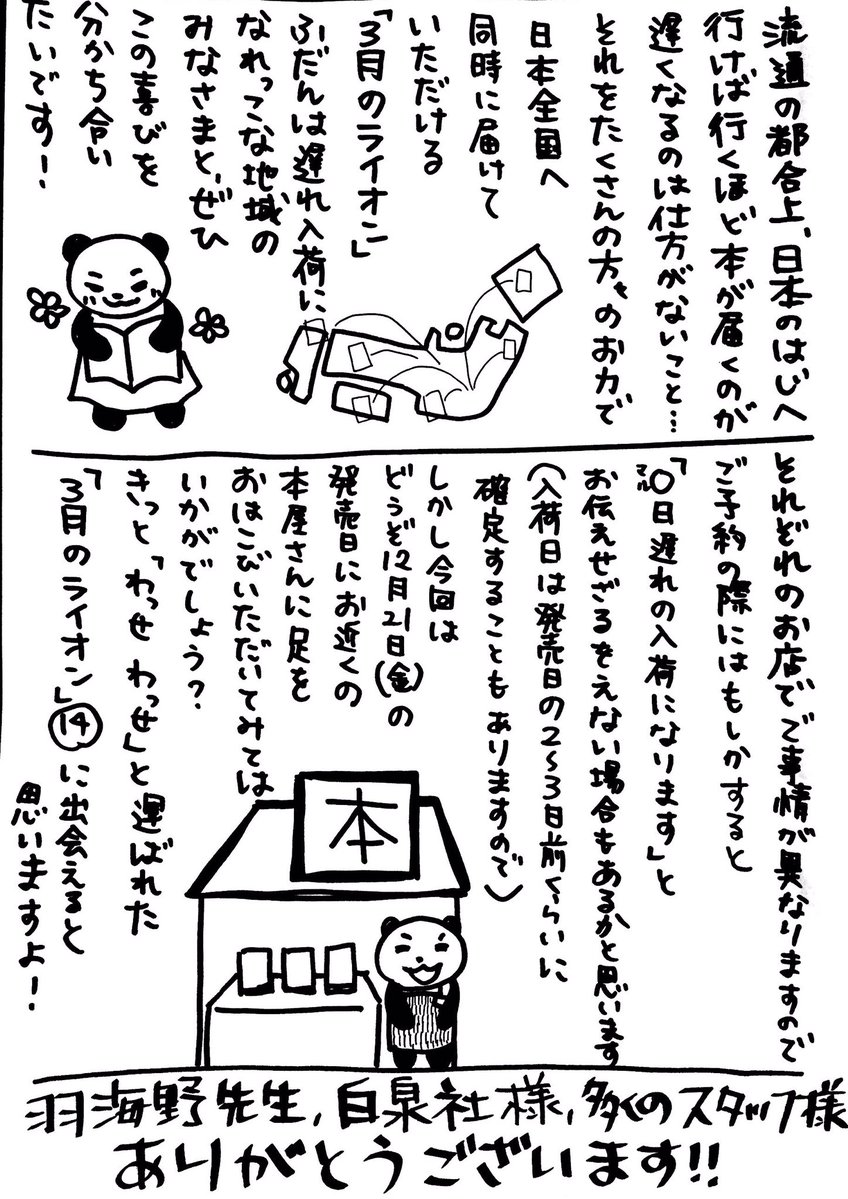 流通の都合上、日本のはじへ
行けば行くほど本が届くのが
遅くなるのは仕方がないこと…
それをたくさんの方々のお力で
日本全国へ
同時に届けて
いただける
「3月のライオン」
ふだんは遅れ入荷に
なれっこな地域の
みなさまと、ぜひ
この喜びを
分かち合い
たいです！
それぞれのお店でご事情が異なりますので
ご予約の際にはもしかすると
「〇日遅れの入荷になります」と
マル
お伝えせざるをえない場合もあるかと思います
(入荷日は発売日の2〜3日前くらいに
確定することもありますので)
しかし今回は
どうぞ12月21日(金)の
発売日にお近くの
本屋さんに足を
おはこびいただいてみては
いかがでしょう?
きっと「わっせ わっせ」と運ばれた
「3月のライオン」⑭に出会えると
思いますよ！
本
羽海野先生,白泉社様,多くのスタッフ様
ありがとうございます!!